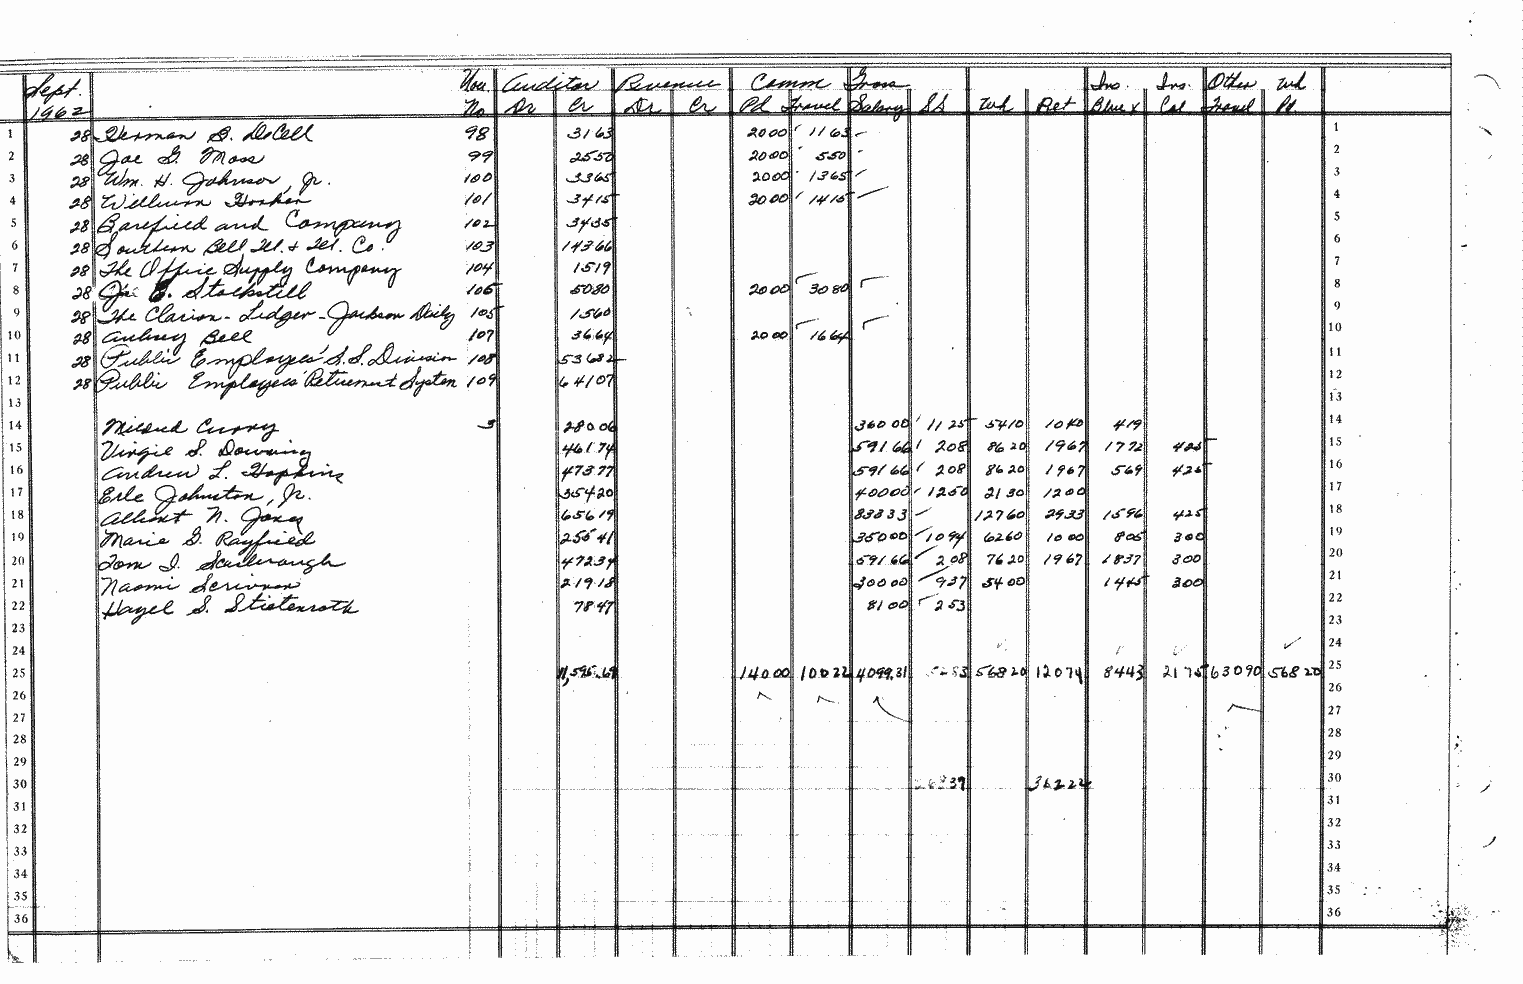 Sept. Vou. Auditor Revenue Comm Gross Ins. Ins. Other Wh
1962 No Dr Cr Dr Cr Pd Travel Salary SS Wh Ret Blue x Col Travel Pd
1 28 Herman B. DeCell 98 3163 2000 1163 1
2 28 Joe G. Moss 99 2550 2000 550 2
3 28 Wm. H. Johnson, Jr. 100 3365 2000 1365 3
4 28 William Hooker 101 3415 2000 1415 4
5 28 Barefield and Company 102 3435 5
6 28 Southern Bell Tel. & Tel. Co. 103 14366 6
7 28 The Office Supply Company 104 1519 7
8 28 Stockstill 106 5080 2000 3080 8
9 28 The Clarion-Ledger-Jackson Daily 105 1560 9
10 28 Aubrey Bell 107 3664 2000 1664 10
11 28 Public Employees' S.S. Division 108 53682 11
12 28 Public Employees' Retirement System 109 64107 12
13 13
14 Mildred Curry 3 28006 36000 1125 5410 1040 419 14
15 Virgie S. Downing 46174 59166 208 8620 1967 1772 425 15
16 Andrew L. Hopkins 47377 59166 208 8620 1967 569 425 16
17 Erle Johnston, Jr. 35420 40000 1250 2130 1200 17
18 Albert N. Jones 65619 83333 12760 2933 1596 425 18
19 Marie G. Rayfield 25541 35000 1094 6260 1000 805 300 19
20 Tom J. Scarbrough 47234 59166 208 7620 1967 1837 300 20
21 Naomi Scrivner 21918 30000 937 5400 1445 300 21
22 Hazel S. Stietenroth 7847 8100 253 22
23 23
24 24
25 14000 10022 4099.31 56820 12074 8443 2175 63090 56820 25
26 26
27 27
28 28
29 29
30 36222 30
31 31
32 32
33 33
34 34
35 35
36 36